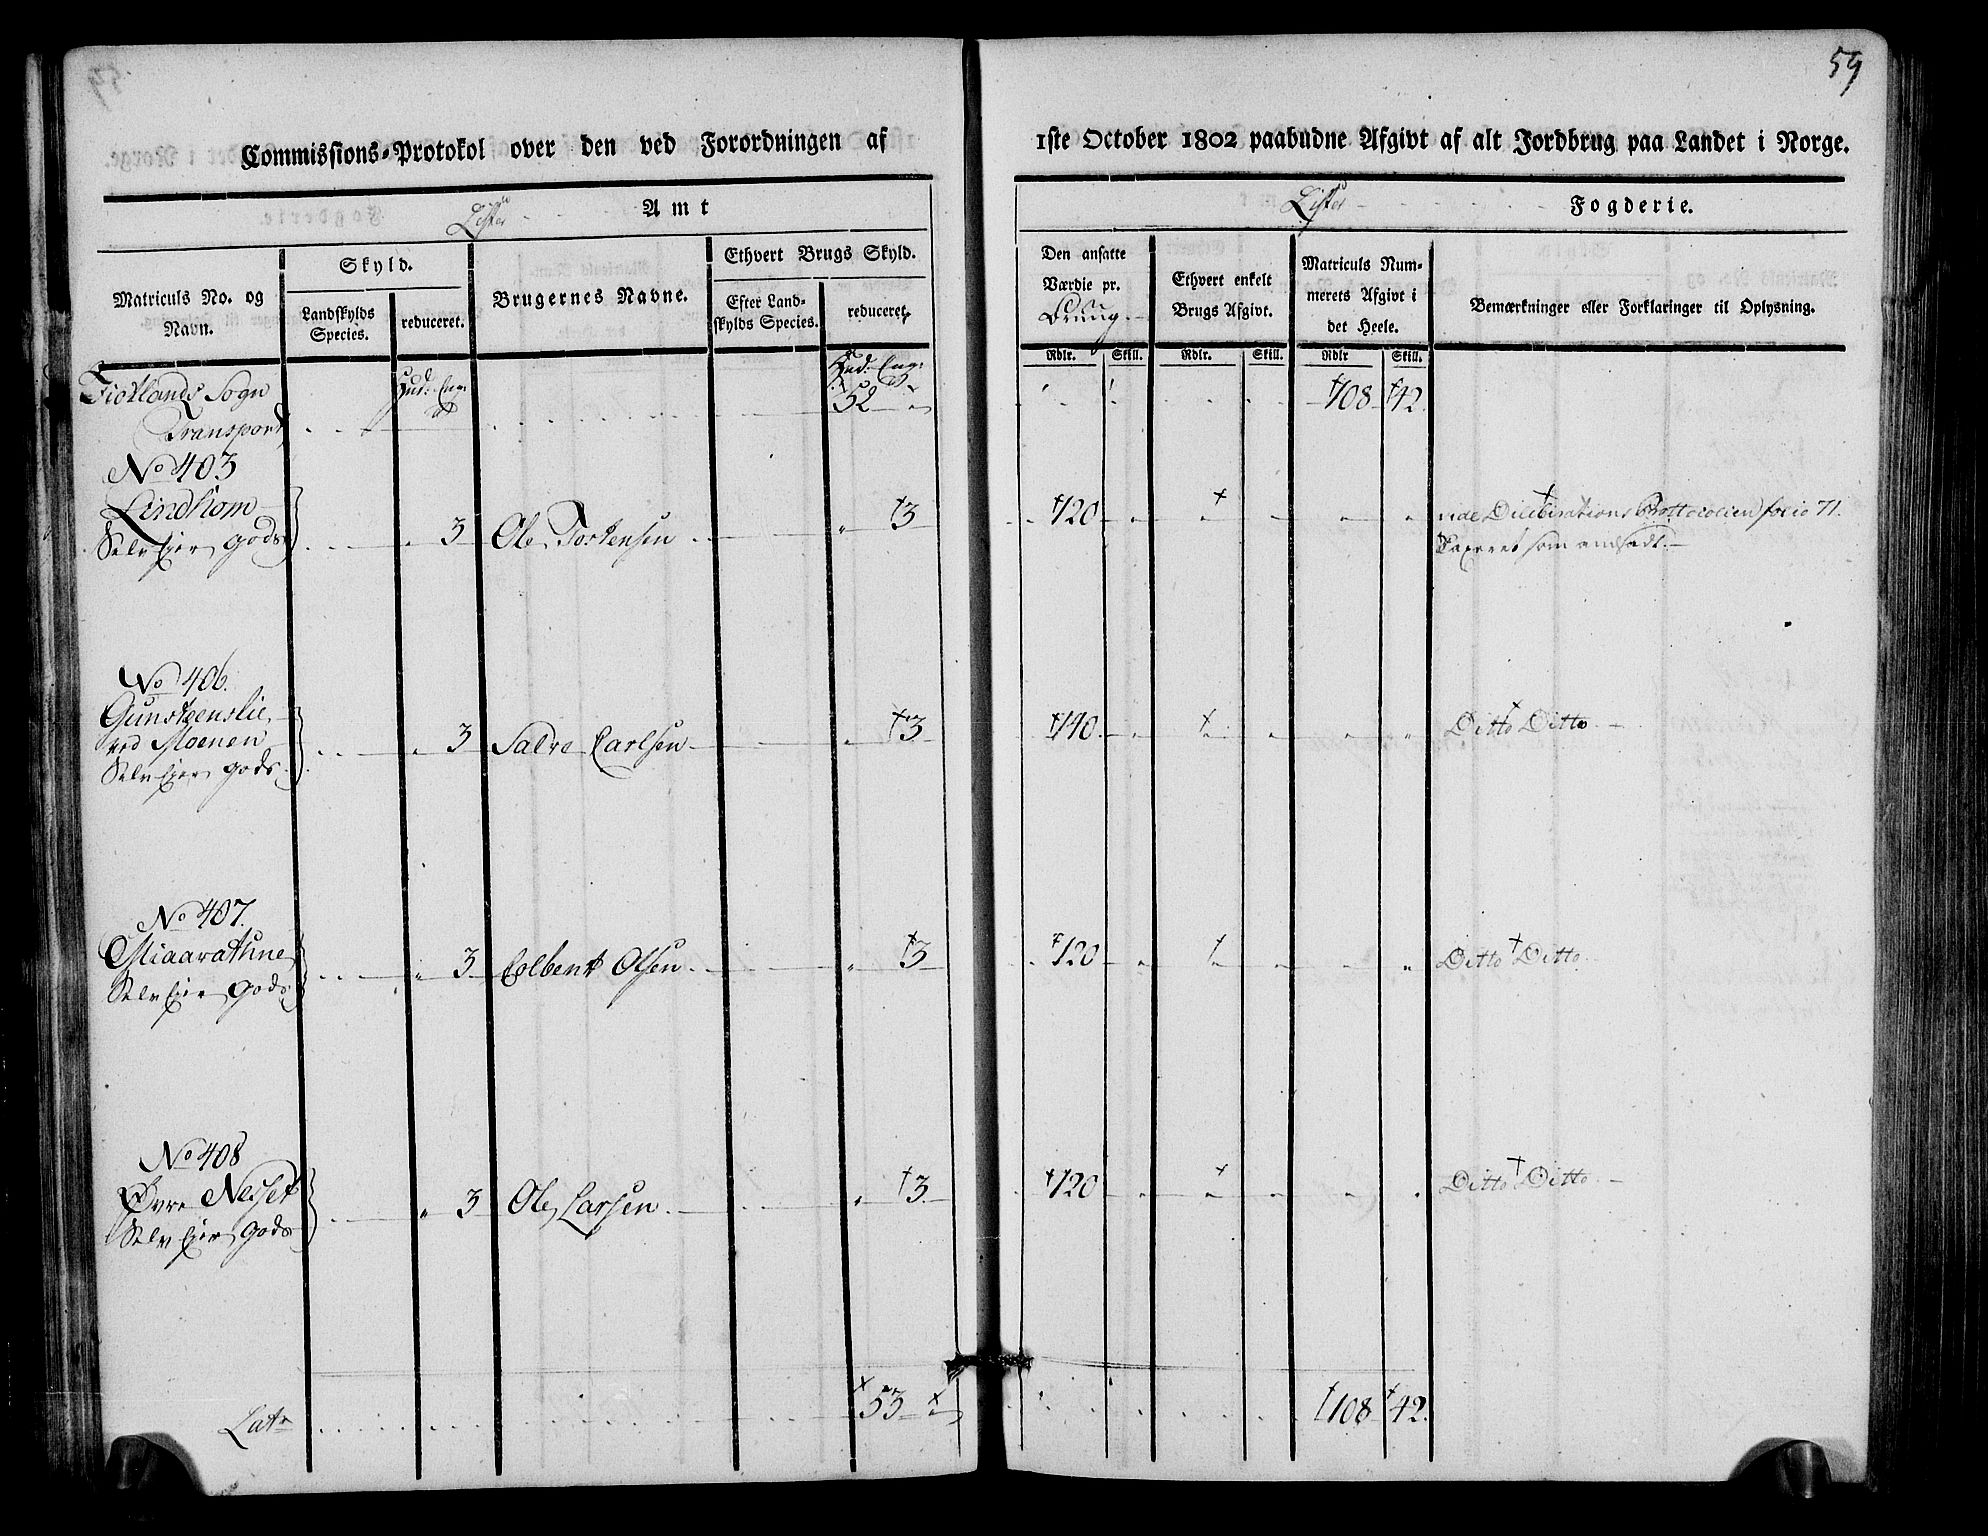 59
Commissions-Protokol over den ved Forordningen af 1ste October 1802 paabudne Afgivt af alt Jordbrug paa Landet i Norge.
Lister Amt
Lister Fogderie.
Matriculs No. og Navn.
Skyld.
Landskylds Species.
reduceret.
Brugernes Navne.
Ethvert Brugs Skyld.
Efter Landskylds Species.
reduceret.
Den ansatte Værdie pr. 
Ethvert enkelt Brugs Afgivt.
Matriculs Nummerets Afgivt i det Heele.
Bemærkninger eller Forklaringer til Oplysning.
Rdlr. Skill. Rdlr. Skill. Rdlr Skill.
Fiotlands Sogn Hud: Eng: Hud: Eng:
Transport 52 108 42.
No 403
Lindhom 3 Ole Torkensen 3 120 vide Deliberations Prottocolen folio 71.
Selv Eier Gods Taxeret som andsadt.
No 406.
Gunsteenslie
ved Moenen 3 Salve Carlsen 3 140 Ditto Ditto
Selv Eier Gods
No 407.
Miaavathne 3 Colbent Olsen 3 120 Ditto Ditto
Selv Eier Gods
No 408
Øvre Nesset 3 Ole Larsen 3 120 Ditto Ditto
Selv Eier Gods
Latr 53 108 42.